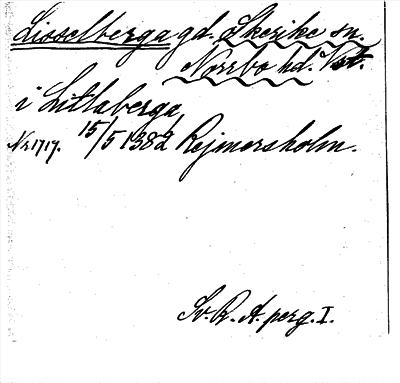 Lisselberga gd. Skerike sn.
Norrbo hd. Vstm.
i Litlaberga
Nr 1717. 15/5 1382 Rejmersholm.
Sv. R. A. perg. I.